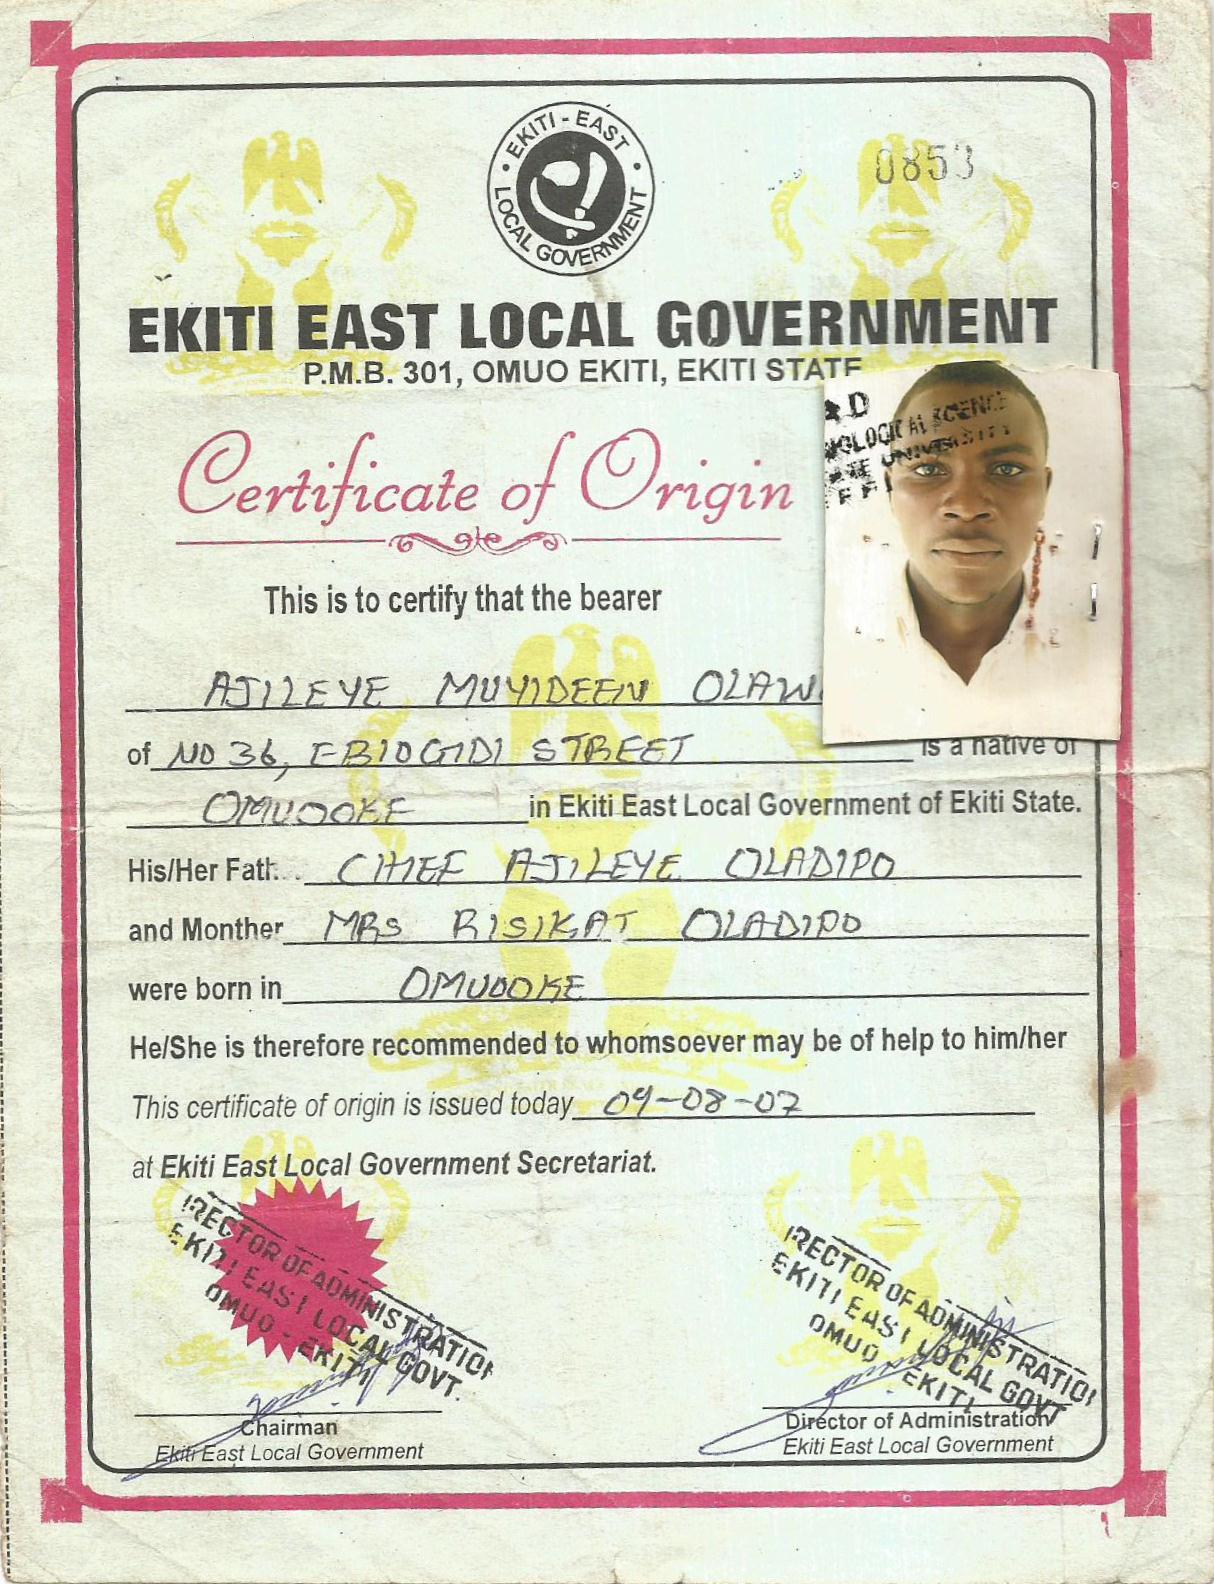 EKITI - EAST
LOCAL GOVERNMENT
0853
EKITI EAST LOCAL GOVERNMENT
P.M.B. 301, OMUO EKITI, EKITI STATE
Certificate of Origin
This is to certify that the bearer
AJILEYE MUYIDEEN
of NO 36, EBIOGIDI STREET is a native of
OMUOOKE in Ekiti East Local Government of Ekiti State.
His/Her CHIEF AJILEYE OLADIPO
and Monther MRS RISIKAT OLADIPO
were born in OMUOOKE
He/She is therefore recommended to whomsoever may be of help to him/her
This certificate of origin is issued today 09-08-07
at Ekiti East Local Government Secretariat.
IRECTOR OF ADMINISTRATION
EKITI EAST LOCAL GOVT.
OMUO - EKITI
Chairman
Ekiti East Local Government
IRECTOR OF ADMINISTRATION
EKITI EAST LOCAL GOVT
OMUO EKITI
Director of Administration
Ekiti East Local Government